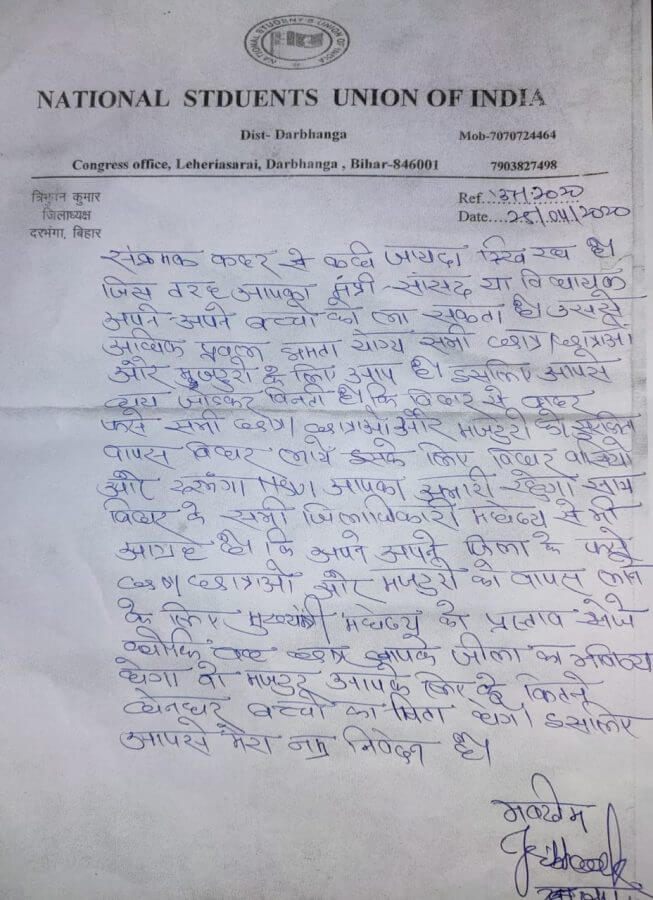 NATIONAL STUDENT'S UNION OF INDIA
NATIONAL STDUENTS UNION OF INDIA
Dist- Darbhanga
Mob-7070724464
Congress office, Leheriasarai, Darbhanga , Bihar-846001
7903827498
त्रिभुवन कुमार
जिलाध्यक्ष
दरभंगा, बिहार
Ref... 37/2020
Date....25/04/2020
संक्रमक कहर से कही जायदा है।
जिस तरह आपका मंत्री - सांसद या विधायक
अपने-अपने बच्चो को ला सकता है। उससे
अधिक क्षमता योग्य सभी छात्र/छात्राओ
और मजदुरो के लिए आप है। इसलिए आपसे
हाथ जोडकर विनती है। कि बिहार से बाहर
फसे सभी छात्र/छात्राओ और मजदुरो को सुरक्षित
वापस बिहार लाये इसके लिए बिहार वासियो
और आपका अभारी रहेगा साथ
बिहार के सभी जिलाधिकारी महोदय से भी
आग्रह है। कि अपने अपने जिला के फसे
छात्र/छात्राओ और मजदुरो को वापस लाने
के लिए मुख्यमंत्री महोदय को प्रस्ताव भेजे
क्योकि वह छात्र आपके जीला का भविष्य
होगा वो मजदुर आपके लिए कितने
होनहार बच्चो का पिता होगा इसलिए
आपसे मेरा नम्र निवेदन है।
भवदीय